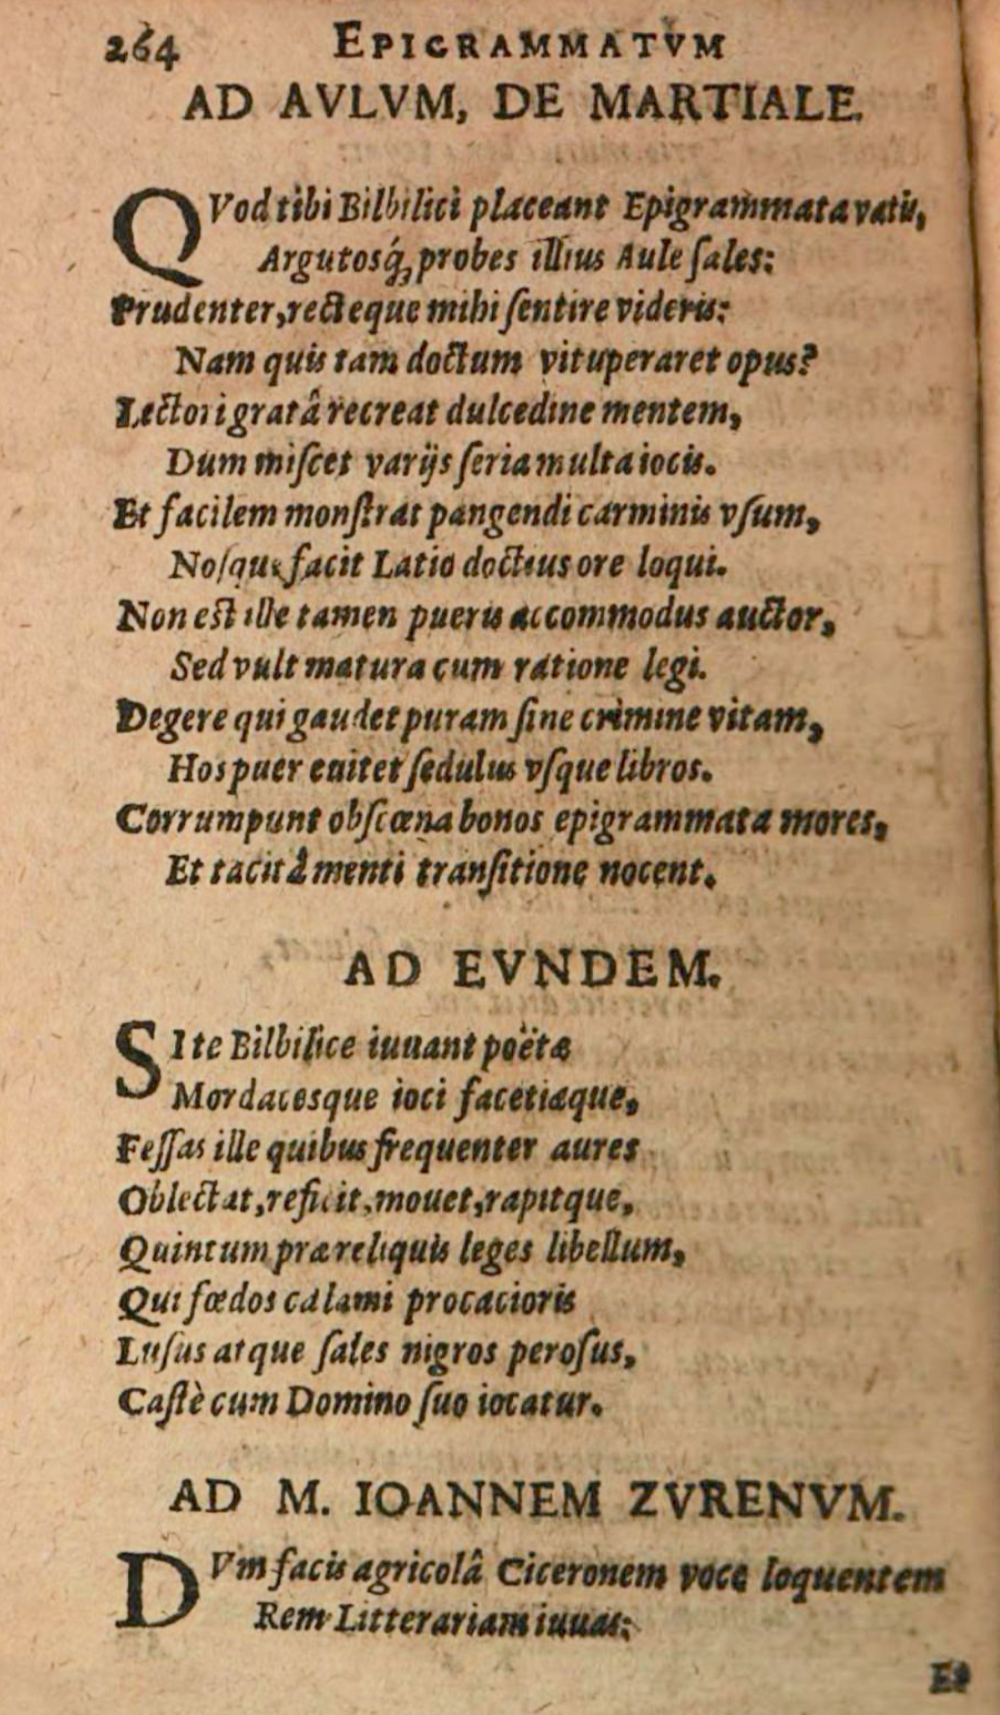 264 EPIGRAMMATVM
AD AVLVM, DE MARTIALE.
QVod tibi Bilbilici placeant Epigrammata vatis,
Argutosq́; probes illius Aule ſales:
Prudenter, recteque mihi ſentire videris:
Nam quis tam doctum vituperaret opus?
Lectori gratâ recreat dulcedine mentem,
Dum miſcet varijs ſeria multa iocis.
Et facilem monſtrat pangendi carminis vſum,
Noſque facit Latio doctius ore loqui.
Non est ille tamen pueris accommodus auctor,
Sed vult matura cum ratione legi.
Degere qui gaudet puram ſine crimine vitam,
Hos puer euitet ſedulus vſque libros.
Corrumpunt obſcœna bonos epigrammata mores,
Et tacitâ menti tranſitione nocent.
AD EVNDEM.
SI te Bilbilice iuuant poëtæ
Mordacesque ioci facetiæque,
Feſſas ille quibus frequenter aures
Oblectat, reficit, mouet, rapitque,
Quintum præ reliquis leges libellum,
Qui fœdos calami procacioris
Luſus atque ſales nigros peroſus,
Caſtè cum Domino ſuo iocatur.
AD M. IOANNEM ZVRENVM.
DVm facis agricolâ Ciceronem voce loquentem
Rem Litterariam iuuas:
Et